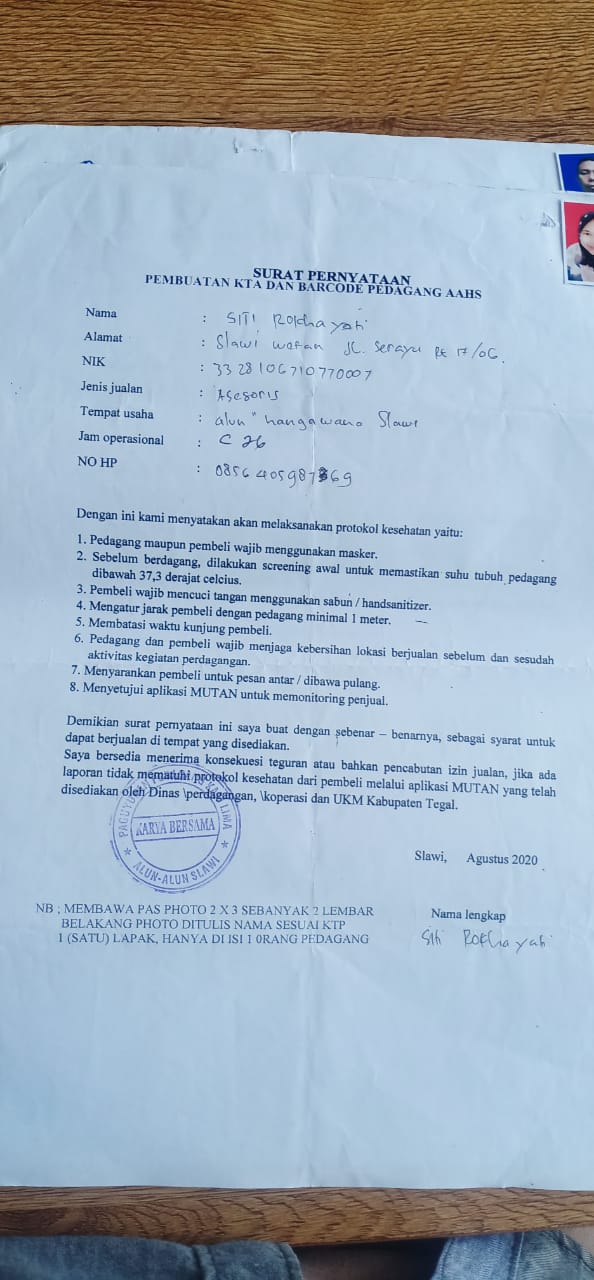 SURAT PERNYATAAN
PEMBUATAN KTA DAN BARCODE PEDAGANG AAHS
Nama : SITI Rokhayati
Alamat : Slawi wetan JL. Serayu Rt 17/06.
NIK : 3328106710770007
Jenis jualan : Asesoris
Tempat usaha : alun" hangawano Slawi
Jam operasional : C 26
NO HP : 085640598769
Dengan ini kami menyatakan akan melaksanakan protokol kesehatan yaitu:
1. Pedagang maupun pembeli wajib menggunakan masker.
2. Sebelum berdagang, dilakukan screening awal untuk memastikan suhu tubuh pedagang
dibawah 37,3 derajat celcius.
3. Pembeli wajib mencuci tangan menggunakan sabun / handsanitizer.
4. Mengatur jarak pembeli dengan pedagang minimal 1 meter.
5. Membatasi waktu kunjung pembeli.
6. Pedagang dan pembeli wajib menjaga kebersihan lokasi berjualan sebelum dan sesudah
aktivitas kegiatan perdagangan.
7. Menyarankan pembeli untuk pesan antar / dibawa pulang.
8. Menyetujui aplikasi MUTAN untuk memonitoring penjual.
Demikian surat pernyataan ini saya buat dengan sebenar – benarnya, sebagai syarat untuk
dapat berjualan di tempat yang disediakan.
Saya bersedia menerima konsekuesi teguran atau bahkan pencabutan izin jualan, jika ada
laporan tidak mematuhi protokol kesehatan dari pembeli melalui aplikasi MUTAN yang telah
disediakan oleh Dinas \perdagangan, \koperasi dan UKM Kabupaten Tegal.
PAGUYUBAN KAKI LIMA
KARYA BERSAMA
ALUN-ALUN SLAWI
Slawi, Agustus 2020
NB ; MEMBAWA PAS PHOTO 2 X 3 SEBANYAK 2 LEMBAR
BELAKANG PHOTO DITULIS NAMA SESUAI KTP
1 (SATU) LAPAK, HANYA DI ISI 1 0RANG PEDAGANG
Nama lengkap
Siti Rokhayati